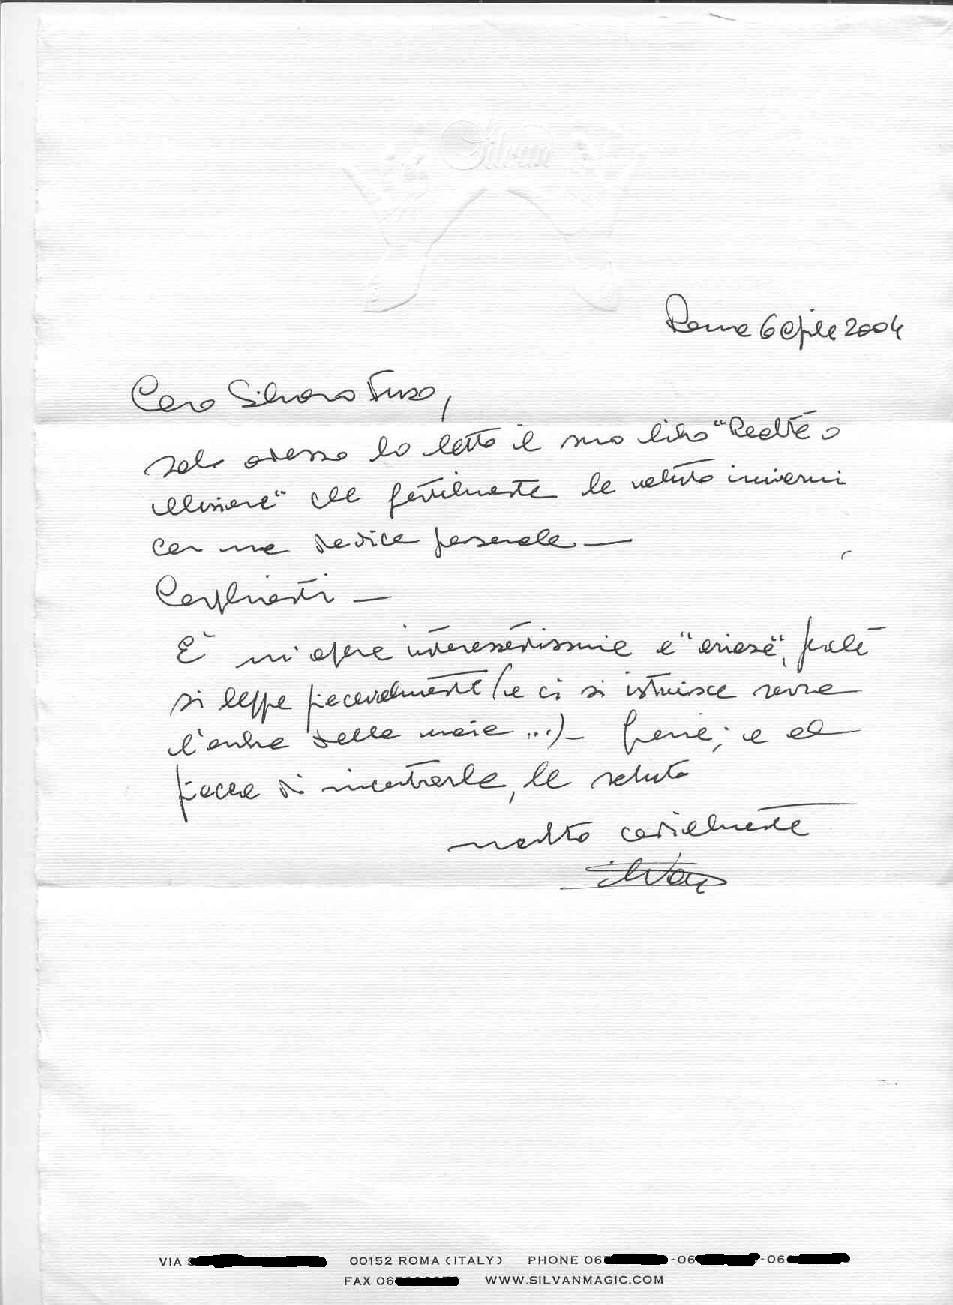 Silvan
Roma 6 aprile 2004
Caro Silvano Fuso,
solo adesso ho letto il suo libro "Realtà o
illusione" che gentilmente ha voluto inviarmi
con una dedica personale —
Complimenti —
È un'opera interessantissima e "ariosa", perché
si legge piacevolmente (e ci si istruisce senza
l'ombra della noia ...) — Grazie, e al
piacere di incontrarla, la saluto
molto cordialmente
Silvan
VIA 00152 ROMA (ITALY) PHONE 06 -06 -06
FAX 06 WWW.SILVANMAGIC.COM